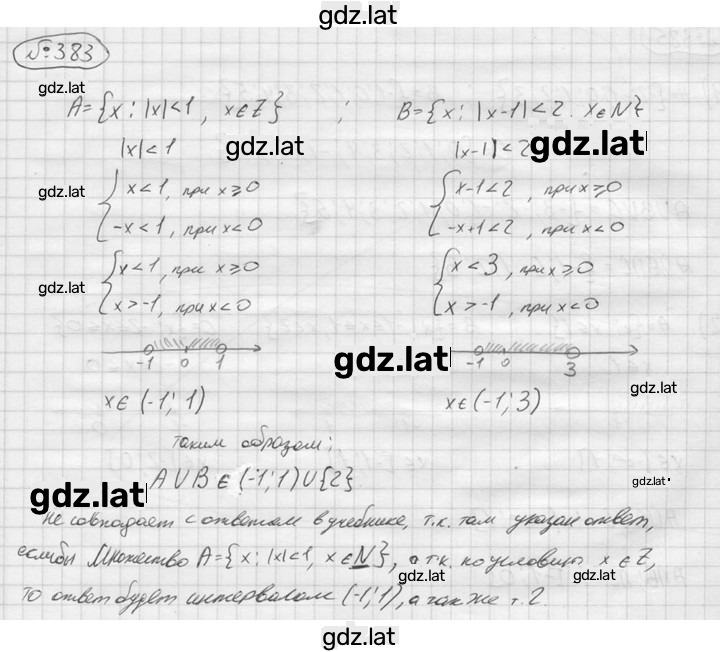 gdz.lat
№383
gdz.lat
A={x: |x|<1, x∈Z} ; B={x: |x-1|<2. x∈N}
|x|<1 gdz.lat |x-1|<2 gdz.lat
gdz.lat { x<1, при x≥0 { x-1<2, при x≥0
-x<1, при x<0 -x+1<2, при x<0
gdz.lat { x<1, при x≥0 { x<3, при x≥0
x>-1, при x<0 x>-1, при x<0
gdz.lat
-1 0 1 -1 0 3
gdz.lat
x∈(-1; 1) x∈(-1; 3)
таким образом:
A∪B∈(-1; 1)∪{2}
gdz.lat gdz.lat
не совпадает с ответом в учебнике, т.к. там указан ответ,
если бы множество A={x: |x|<1, x∈N}, а т.к. по условию x∈Z,
gdz.lat gdz.lat
то ответ будет интервалом (-1; 1), а также т. 2.
gdz.lat